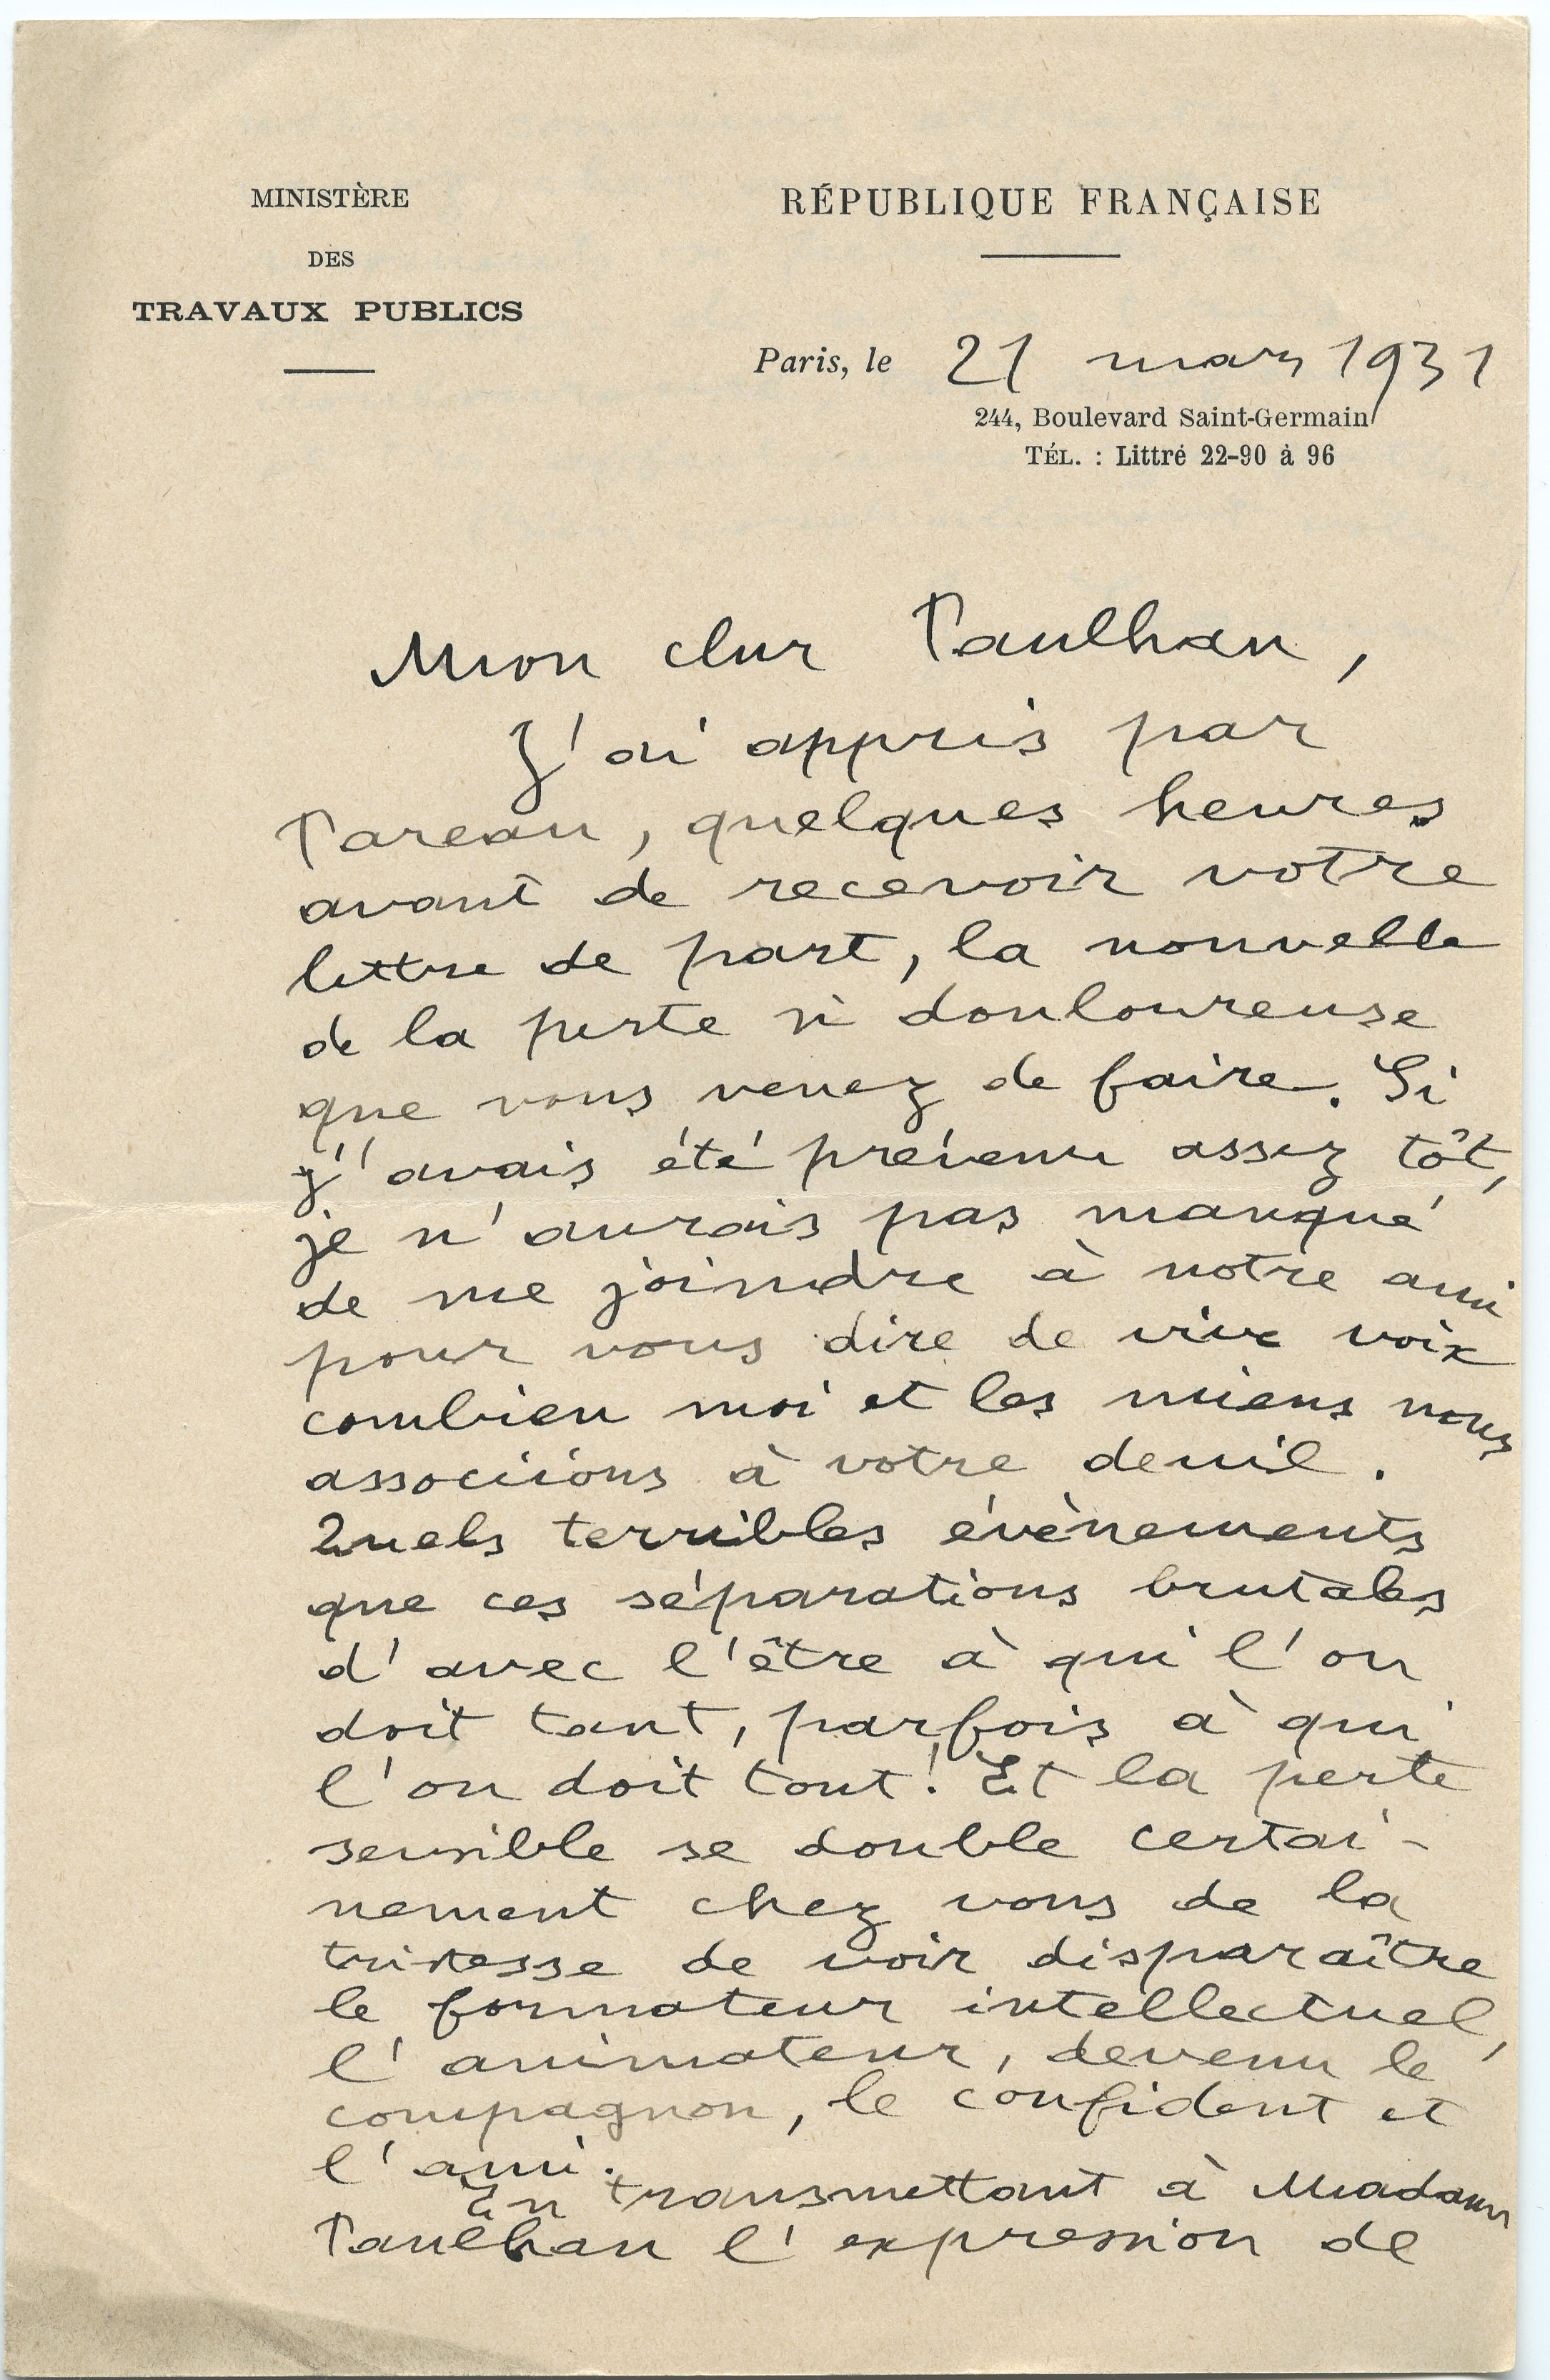 MINISTÈRE
DES
TRAVAUX PUBLICS
RÉPUBLIQUE FRANÇAISE
Paris, le 21 mars 1931
244, Boulevard Saint-Germain
TÉL. : Littré 22-90 à 96
Mon cher Paulhan,
J'ai appris par
Pareau, quelques heures
avant de recevoir votre
lettre de part, la nouvelle
de la perte si douloureuse
que vous venez de faire. Si
j'avais été prévenu assez tôt,
je n'aurais pas manqué
de me joindre à notre ami
pour vous dire de vive voix
combien moi et les miens nous
associions à votre deuil.
Quels terribles évènements
que ces séparations brutales
d'avec l'être à qui l'on
doit tant, parfois à qui
l'on doit tout ! Et la perte
sensible se double certai-
nement chez vous de la
tristesse de voir disparaître
le formateur intellectuel,
l'animateur, devenu le
compagnon, le confident et
l'ami.
En transmettant à Madame
Paulhan l'expression de